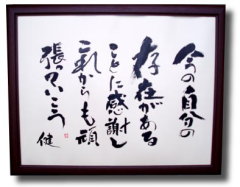 今の自分の
存在がある
ことに感謝し
これからも頑
張っていこう
健